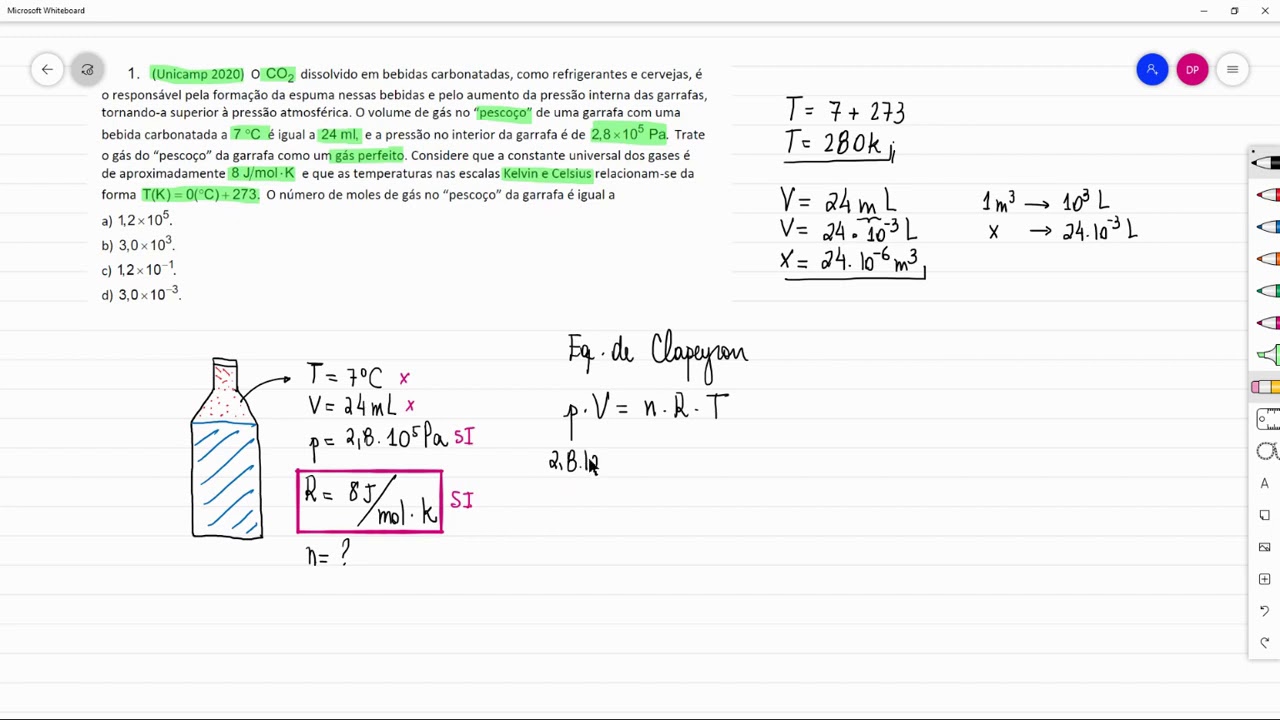 Microsoft Whiteboard
DP
1. (Unicamp 2020) O CO₂ dissolvido em bebidas carbonatadas, como refrigerantes e cervejas, é
o responsável pela formação da espuma nessas bebidas e pelo aumento da pressão interna das garrafas,
tornando-a superior à pressão atmosférica. O volume de gás no “pescoço” de uma garrafa com uma
bebida carbonatada a 7 °C é igual a 24 ml, e a pressão no interior da garrafa é de 2,8×10⁵ Pa. Trate
o gás do “pescoço” da garrafa como um gás perfeito. Considere que a constante universal dos gases é
de aproximadamente 8 J/mol·K e que as temperaturas nas escalas Kelvin e Celsius relacionam-se da
forma T(K) = θ(°C)+273. O número de moles de gás no “pescoço” da garrafa é igual a
a) 1,2×10⁵.
b) 3,0×10³.
c) 1,2×10⁻¹.
d) 3,0×10⁻³.
T = 7 + 273
T = 280k
V = 24 mL
V = 24 · 10⁻³ L
x = 24. 10⁻⁶ m³
1m³ → 10³ L
x → 24.10⁻³ L
T = 7°C x
V = 24mL x
p = 2,8. 10⁵ Pa SI
R = 8J/mol·k SI
n = ?
Eq. de Clapeyron
p · V = n · R · T
2,8.10
A